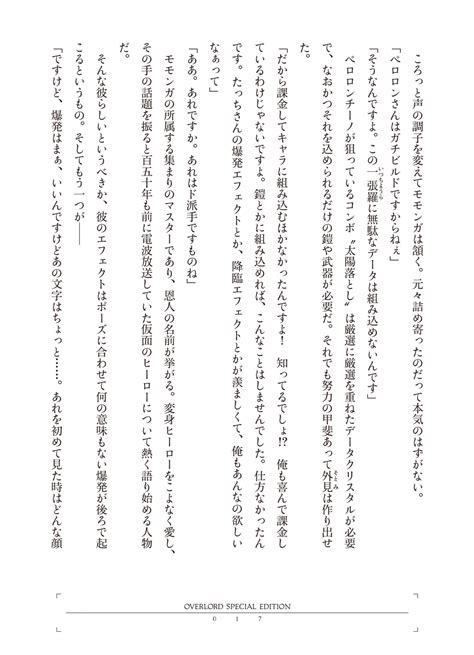 ころっと声の調子を変えてモモンガは頷く。元々詰め寄ったのだって本気のはずがない。
「ペロロンさんはガチビルドですからねぇ」
「そうなんですよ。この一張羅に無駄なデータは組み込めないんです」
いっちょうら
ペロロンチーノが狙っているコンボ〝太陽落とし〟は厳選に厳選を重ねたデータクリスタルが必要
で、なおかつそれを込められるだけの鎧や武器が必要だ。それでも努力の甲斐あって外見は作り出せ
そとみ
た。
「だから課金してキャラに組み込むほかなかったんですよ！　知ってるでしょ!?　俺も喜んで課金し
ているわけじゃないですよ。鎧とかに組み込めれば、こんなことはしませんでした。仕方なかったん
です。たっちさんの爆発エフェクトとか、降臨エフェクトとかが羨ましくて、俺もあんなの欲しい
なぁって」
「ああ。あれですか。あれはド派手ですものね」
モモンガの所属する集まりのマスターであり、恩人の名前が挙がる。変身ヒーローをこよなく愛し、
その手の話題を振ると百五十年も前に電波放送していた仮面のヒーローについて熱く語り始める人物
だ。
そんな彼らしいというべきか、彼のエフェクトはポーズに合わせて何の意味もない爆発が後ろで起
こるというもの。そしてもう一つが――
「ですけど、爆発はまぁ、いいんですけどあの文字はちょっと……。あれを初めて見た時はどんな顔
OVERLORD SPECIAL EDITION
017